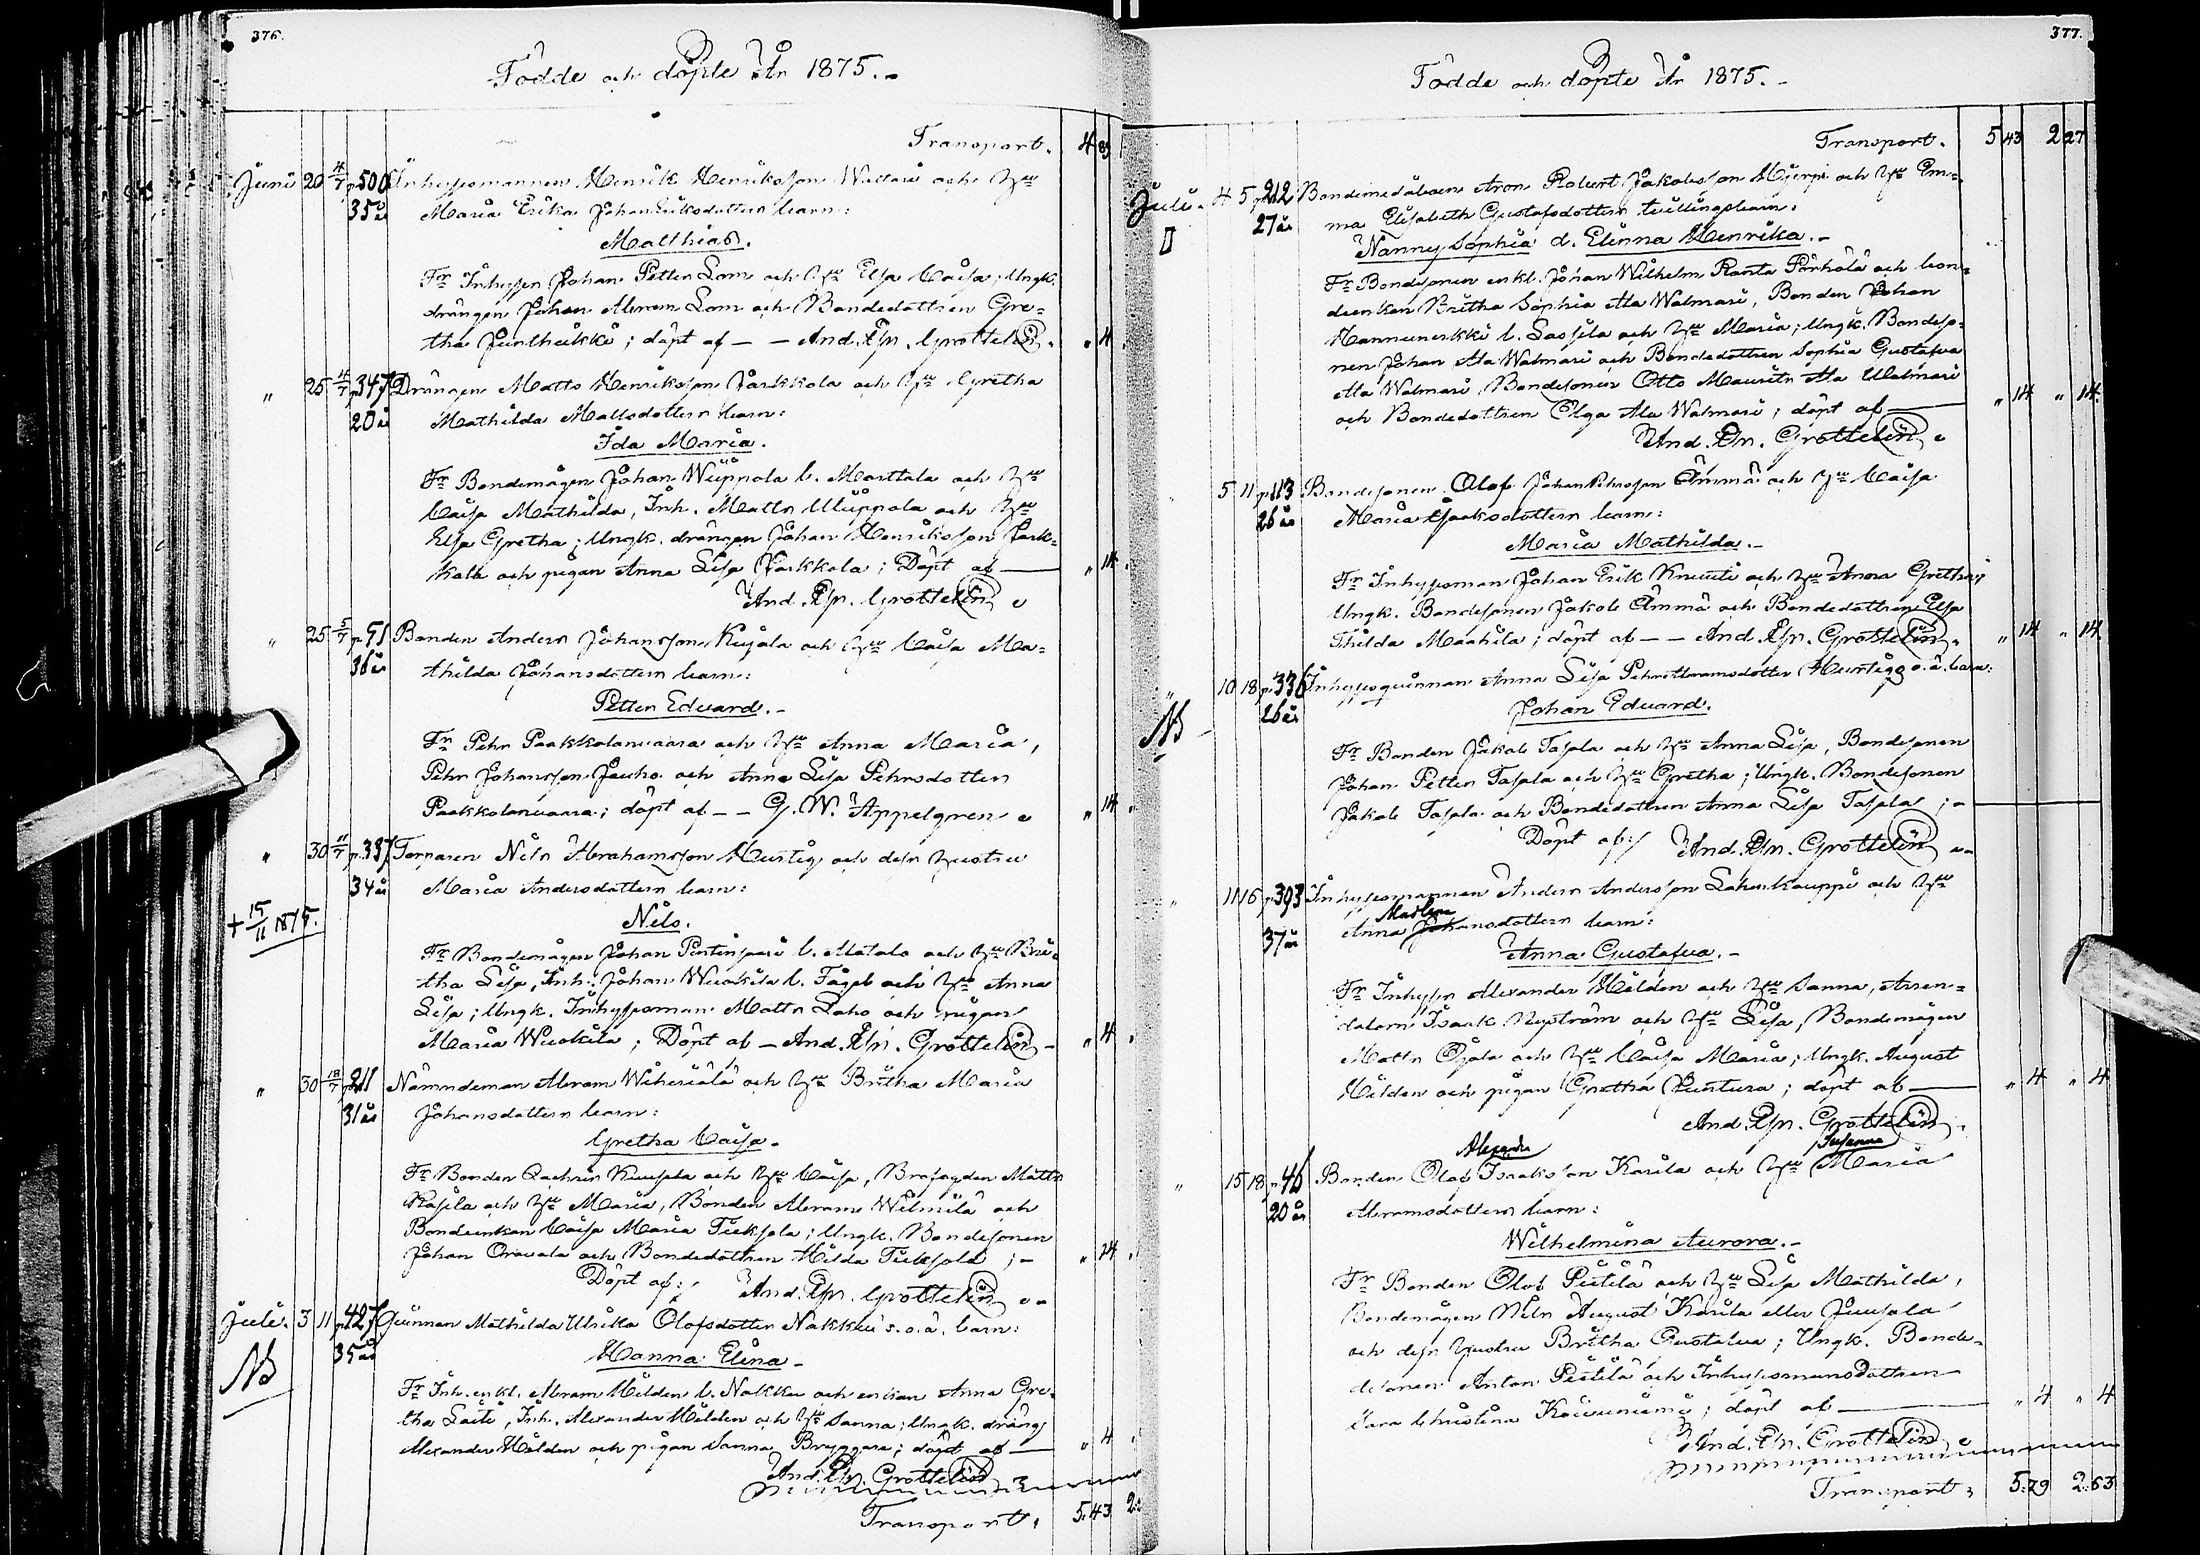 376.
Födde och döpte År 1875.-
Transport. 4 89
Juni 20 4/7 p.500 Inhysesmannen Henrik Henriksson Wallari och Hu
35 år Maria Erika Johan Eriksdotters barn:
Matthias.
Fr Inhysen Johan Petter Lom och Hu Elsa Caisa; Ungk.
drängen Johan Abram Lom och Bondedottren Gre=
tha Junttikki; döpt af — — And. Joh. Grottelin. " 4
" 25 4/7 p.347 Drängen Matts Henriksson Jaakkola och Hu Gretha
20 år Mathilda Mattsdotters barn:
Ida Maria.
Fr Bondemågen Johan Wuppola l. Marttala och Hu
Caisa Mathilda, Inh. Matts Uluppala och Hu
Elsa Gretha; Ungk. drängen Johan Henriksson Jaak=
kola och pigan Anna Lisa Jaakkola; Döpt af — " 14
And. Joh. Grottelin
" 25 5/7 p.51 Bonden Anders Johansson Kujala och Hu Caisa Ma=
36 år thilda Johansdotters barn:
Petter Edvard.-
Fr Pehr Paakkolanvaara och Hu Anna Maria,
Pehr Johansson Jauho och Anna Lisa Pehrsdotter
Paakkolanvaara; döpt af — — G. W. Appelgren " 14
" 30 11/7 p.337 Torparen Nils Abrahamsson Hurtig och dess hustru
34 år Maria Andersdotters barn:
+ 15/11 1875.
Nils.
Fr Bondemågen Johan l. Alatalo och Hu Bri=
tha Lisa, Inh. Johan Wuokila l. Fågel och Hu Anna
Lisa; Ungk. Inhysesman Matts Laho och pigan
Maria Wuokila; Döpt af — And. Joh. Grottelin — " 4
" 30 18/7 p.211 Nämndeman Abram Wiheriälä och Hu Britha Maria
31 år Johansdotters barn:
Gretha Caisa.
Fr Bonden Zachris Kuusela och Hu Caisa, Brofogden Matts
Rasila och Hu Maria, Bonden Abram Wilmilä och
Bondeenkan Caisa Maria Tieksola; Ungk. Bondesonen
Johan Oravala och Bondedottren Hilda Tieksola; — " 24
Döpt af: And. Joh. Grottelin
Juli. 3 11 p.427 Qvinnan Mathilda Ulrika Olofsdotter Nakku's o.ä. barn:
35 år Hanna Elina.-
NB
Fr Inh. enkl. Abram Hilden l. Nakku och enkan Anna Gre=
tha Laiti, Inh. Alexander Hilden och Hu Sanna; Ungk. dräng
Alexander Hilden och pigan Sanna Bryggare; döpt af — " 4
And. Joh. Grottelin
Transport, 5.43 2:
377.
Födde och döpte År 1875.-
Transport. 5 43 2 27
Juli. 4 5 p.212 Bondemedåboen Aron Robert Jakobsson Hjerpe och Hu Em=
27 år ma Elisabeth Gustafsdotters tvillingbarn:
Nanny Sophia d. Elinna Henrika.-
Fr Bondesonen enkl. Johan Wilhelm Ranta Pörhölä och bon=
deenkan Britha Sophia Ala Walmari, Bonden Johan
Kannunerkki l. Lassila och Hu Maria; Ungk. Bondeso=
nen Johan Ala Walmari och Bondedottren Sophia Gustafva
Ala Walmari, Bondesonen Otto Mauritz Ala Walmari
och Bondedottren Olga Ala Walmari; döpt af — " 14 " 14.
And. Joh. Grottelin
" 5 11 p.113 Bondesonen Olof Johan Pehrsson Ämmä och Hu Caisa
26 år Maria Isaksdotters barn:
Maria Mathilda.-
Fr Inhysesman Johan Erik Knuuti och Hu Anna Gretha;
Ungk. Bondesonen Jakob Ämmä och Bondedottren Elsa
Thilda Maahila; döpt af — — And. Joh. Grottelin. " 14 " 14
" 10 18 p.336 Inhysesqvinnan Anna Lisa Pehr Abramsdotter Hurtigs o.ä. barn:
26 år Johan Edvard.
NB
Fr Bonden Jakob Tapla och Hu Anna Lisa, Bondesonen
Johan Petter Tapla och Hu Gretha; Ungk. Bondesonen
Jakob Tapla och Bondedottren Anna Lisa Tapla; —
Döpt af: And. Joh. Grottelin
" 11 16 p.393 Inhysesmannen Anders Andersson Lahenkauppi och Hu
Madlena
37 år Anna Johansdotters barn:
Anna Gustafva.-
Fr Inhyses Alexander Hilden och Hu Sanna, Arren=
datorn Isaak Nyström och Hu Lisa, Bondemågen
Matts Ojala och Hu Caisa Maria; Ungk. August
Hilden och pigan Gretha Puntura; döpt af — " 4 " 4
And. Joh. Grottelin.
Alexander Susanna
" 15 18 p.46 Bonden Olof Isaksson Karila och Hu Maria
20 år Abramsdotters barn:
Wilhelmina Aurora.-
Fr Bonden Olof Pietilä och Hu Lisa Mathilda,
Bondemågen Nils August Karila eller Juusola
och dess hustru Britha Gustafva; Ungk. Bonde=
desonen Anton Pietilä och Inhysesmansdottren
Sara Christina Koivuniemi; döpt af — " 4 " 4
And. Joh. Grottelin
Transport; 5.79 2.63